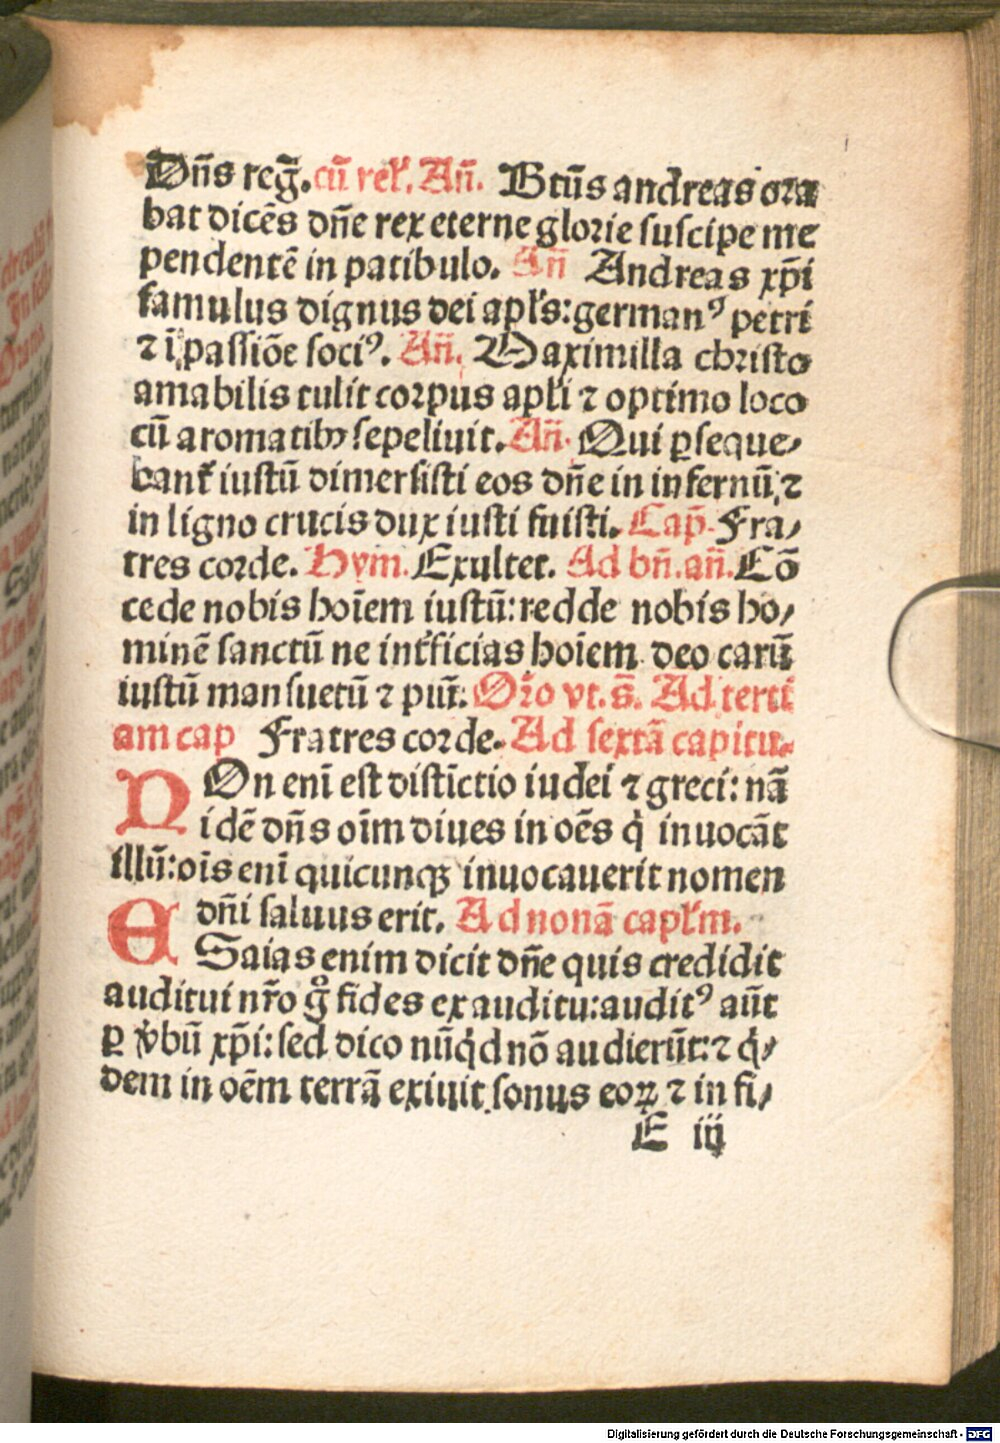 Dn̄s reg̃. cū rel̃. Añ. Btūs andreas ora
bat dicēs dn̄e rex eterne glorie suscipe me
pendentē in patibulo. Añ Andreas xp̄i
famulus dignus dei apl̃s: germanꝰ petri
⁊ ī passiōe sociꝰ. Añ. Maximilla christo
amabilis tulit corpus apl̃i ⁊ optimo loco
cū aromatibꝫ sepeliuit. Añ. Qui ꝑseque⸗
bant̃ iustū dimersisti eos dn̄e in infernū, ⁊
in ligno crucis dux iusti fuisti. Cap̄. Fra⸗
tres corde. Hym. Exultet. Ad bn̄. añ. Cō
cede nobis hoīem iustū: redde nobis ho⸗
minē sanctū ne int̃ficias hoīem deo carū
iustū mansuetū ⁊ piū: Or̄o vt. s̄. Ad terti
am cap Fratres corde. Ad sextā capitu.
NOn enī est distīctio iudei ⁊ greci: nā
idē dn̄s oīm diues in oēs q̇ inuocāt
illū: oīs enī quicunqꝫ inuocauerit nomen
dn̄i saluus erit. Ad nonā capl̃m.
ESaias enim dicit dn̄e quis credidit
auditui nr̄o gͦ fides ex auditu: auditꝰ aūt
ꝑ v̓bū xp̄i: sed dico nūq̇d nō audierūt: ⁊ q̇⸗
dem in oēm terrā exiuit sonus eoꝝ ⁊ in fi⸗
E iij
Digitalisierung gefördert durch die Deutsche Forschungsgemeinschaft - DFG